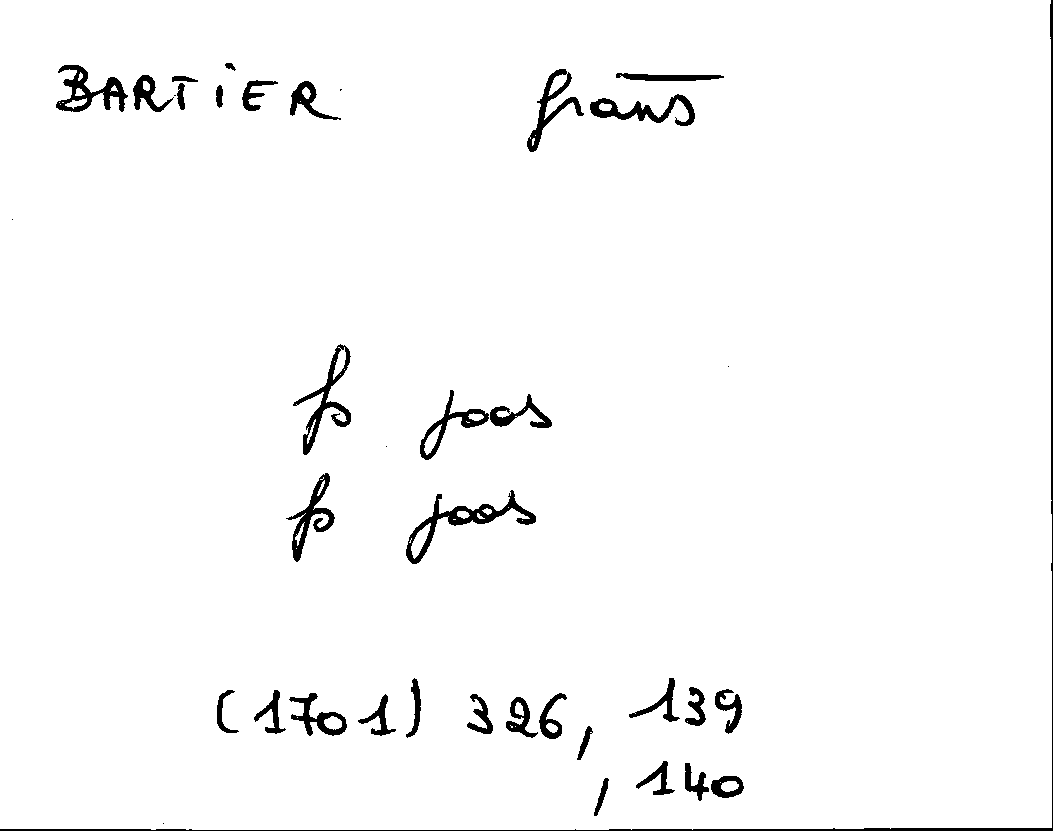 BARTiER frans
fs joos
fs joos
(1701) 326, 139
, 140